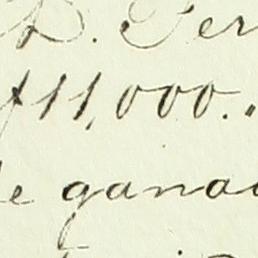 D. Fer
11,000..
de ganad